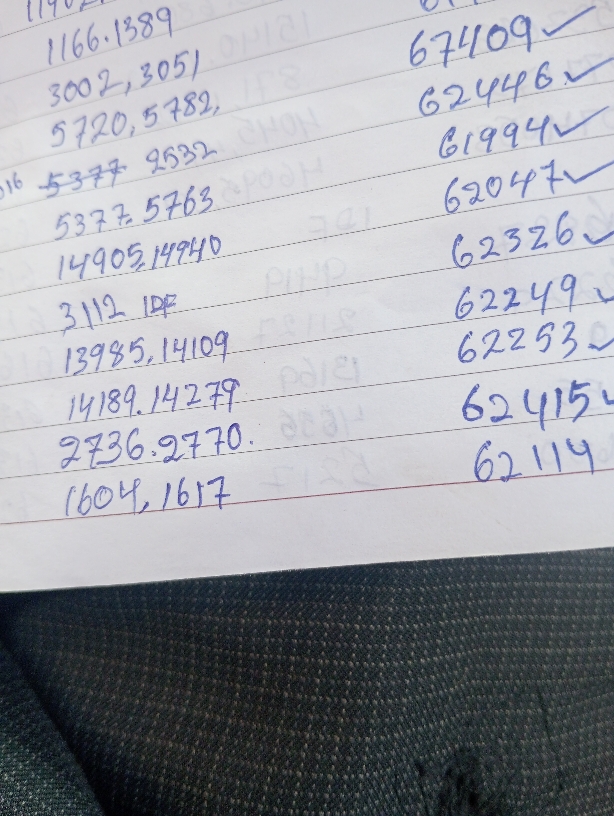 1166.1389 67409 ✓
3002, 3051 62446 ✓
5720, 5782, 61994 ✓
016 5377 2532 62047 ✓
5377. 5763 62326 ✓
14905, 14940 62249 ✓
3112 IDF 62253 ✓
13985, 14109 62415 ✓
14189. 14279 62114
2736. 2770.
1604, 1617